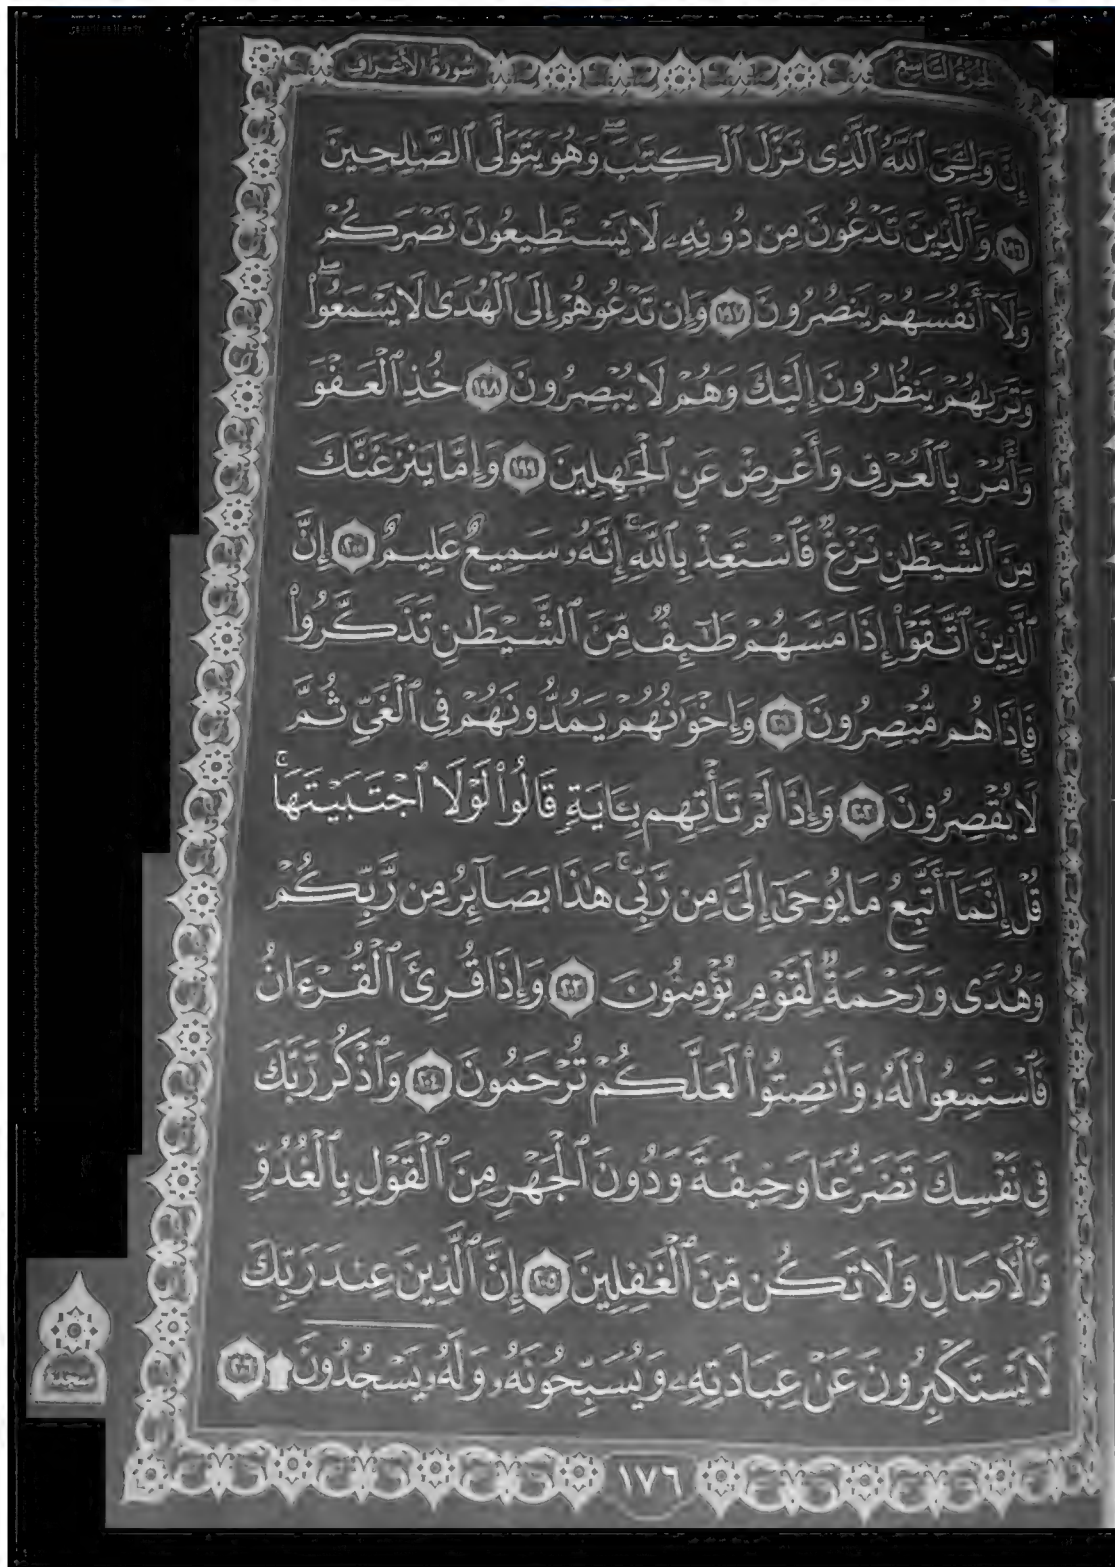 الجزء التاسع
سورة الأعراف
إِنَّ وَلِـِّۧيَ ٱللَّهُ ٱلَّذِى نَزَّلَ ٱلْكِتَٰبَۖ وَهُوَ يَتَوَلَّى ٱلصَّٰلِحِينَ
١٩٦ وَٱلَّذِينَ تَدْعُونَ مِن دُونِهِۦ لَا يَسْتَطِيعُونَ نَصْرَكُمْ
وَلَآ أَنفُسَهُمْ يَنصُرُونَ ١٩٧ وَإِن تَدْعُوهُمْ إِلَى ٱلْهُدَىٰ لَا يَسْمَعُوا۟ۖ
وَتَرَىٰهُمْ يَنظُرُونَ إِلَيْكَ وَهُمْ لَا يُبْصِرُونَ ١٩٨ خُذِ ٱلْعَفْوَ
وَأْمُرْ بِٱلْعُرْفِ وَأَعْرِضْ عَنِ ٱلْجَٰهِلِينَ ١٩٩ وَإِمَّا يَنزَغَنَّكَ
مِنَ ٱلشَّيْطَٰنِ نَزْغٌ فَٱسْتَعِذْ بِٱللَّهِۚ إِنَّهُۥ سَمِيعٌ عَلِيمٌ ٢٠٠ إِنَّ
ٱلَّذِينَ ٱتَّقَوْا۟ إِذَا مَسَّهُمْ طَٰٓئِفٌ مِّنَ ٱلشَّيْطَٰنِ تَذَكَّرُوا۟
فَإِذَا هُم مُّبْصِرُونَ ٢٠١ وَإِخْوَٰنُهُمْ يَمُدُّونَهُمْ فِى ٱلْغَىِّ ثُمَّ
لَا يُقْصِرُونَ ٢٠٢ وَإِذَا لَمْ تَأْتِهِم بِـَٔايَةٍ قَالُوا۟ لَوْلَا ٱجْتَبَيْتَهَاۚ
قُلْ إِنَّمَآ أَتَّبِعُ مَا يُوحَىٰٓ إِلَىَّ مِن رَّبِّىۚ هَٰذَا بَصَآئِرُ مِن رَّبِّكُمْ
وَهُدًى وَرَحْمَةٌ لِّقَوْمٍ يُؤْمِنُونَ ٢٠٣ وَإِذَا قُرِئَ ٱلْقُرْءَانُ
فَٱسْتَمِعُوا۟ لَهُۥ وَأَنصِتُوا۟ لَعَلَّكُمْ تُرْحَمُونَ ٢٠٤ وَٱذْكُر رَّبَّكَ
فِى نَفْسِكَ تَضَرُّعًا وَخِيفَةً وَدُونَ ٱلْجَهْرِ مِنَ ٱلْقَوْلِ بِٱلْغُدُوِّ
وَٱلْـَٔاصَالِ وَلَا تَكُن مِّنَ ٱلْغَٰفِلِينَ ٢٠٥ إِنَّ ٱلَّذِينَ عِندَ رَبِّكَ
لَا يَسْتَكْبِرُونَ عَنْ عِبَادَتِهِۦ وَيُسَبِّحُونَهُۥ وَلَهُۥ يَسْجُدُونَ ۩ ٢٠٦
سجدة
١٧٦